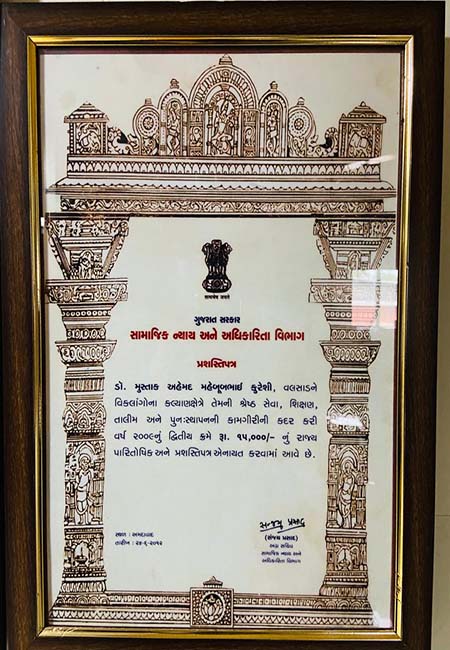 सत्यमेव जयते
ગુજરાત સરકાર
સામાજિક ન્યાય અને અધિકારિતા વિભાગ
પ્રશસ્તિપત્ર
ડૉ. મુસ્તાક અહેમદ મહેબુબભાઈ કુરેશી, વલસાડને
વિકલાંગોના કલ્યાણક્ષેત્રે તેમની શ્રેષ્ઠ સેવા, શિક્ષણ,
તાલીમ અને પુનઃસ્થાપનની કામગીરીની કદર કરી
વર્ષ ૨૦૦૯નું દ્વિતીય ક્રમે રૂા. ૧૫,૦૦૦/- નું રાજ્ય
પારિતોષિક અને પ્રશસ્તિપત્ર એનાયત કરવામાં આવે છે.
સ્થળ : અમદાવાદ
તારીખ : ૨૭-૬-૨૦૧૨
સંજય પ્રસાદ
(સંજય પ્રસાદ)
સચિવ
સામાજિક ન્યાય અને
અધિકારિતા વિભાગ